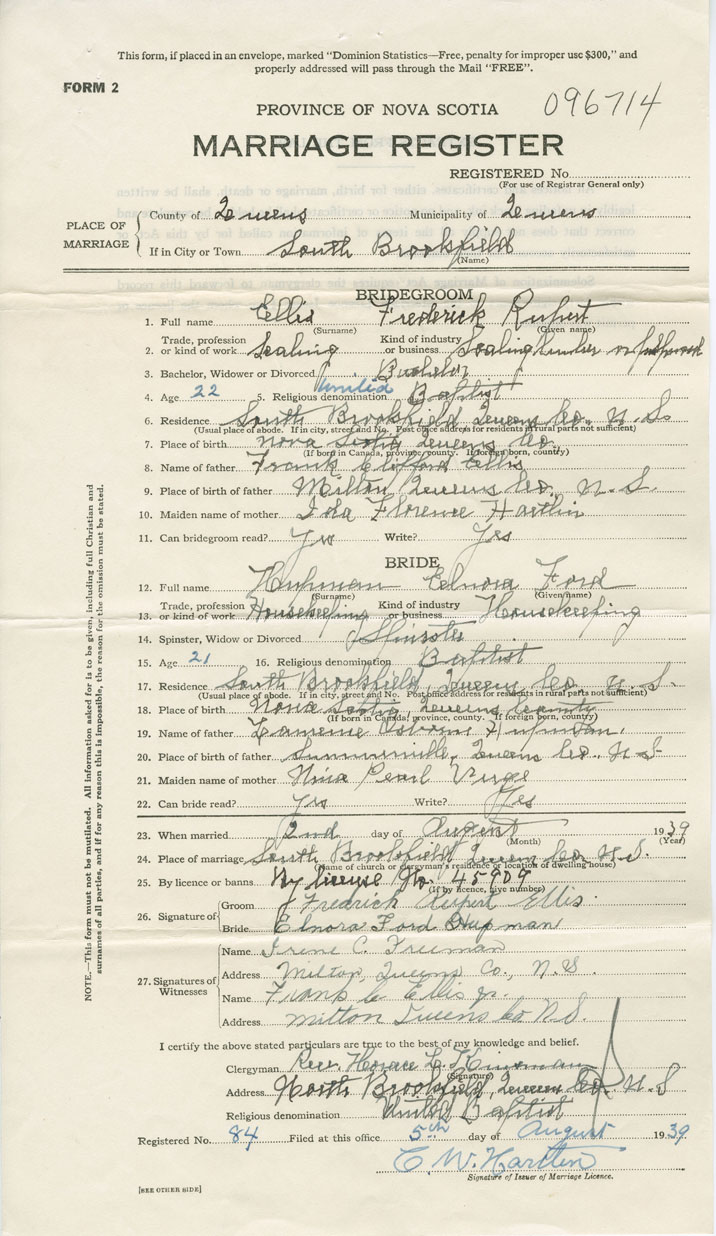 This form, if placed in an envelope, marked "Dominion Statistics—Free, penalty for improper use $300," and
properly addressed will pass through the Mail "FREE".
FORM 2
096714
PROVINCE OF NOVA SCOTIA
MARRIAGE REGISTER
REGISTERED No.
(For use of Registrar General only)
PLACE OF MARRIAGE
County of Queens Municipality of Queens
If in City or Town South Brookfield
(Name)
BRIDEGROOM
1. Full name Ellis Frederick Rupert
(Surname) (Given name)
2. Trade, profession or kind of work Scaling Kind of industry or business Scaling lumber or pulpwood
3. Bachelor, Widower or Divorced Bachelor
4. Age 22 5. Religious denomination United Baptist
6. Residence South Brookfield Queens Co. N.S.
(Usual place of abode. If in city, street and No. Post office address for residents in rural parts not sufficient)
7. Place of birth Nova Scotia Queens Co.
(If born in Canada, province, county. If foreign born, country)
8. Name of father Frank Clifford Ellis
9. Place of birth of father Milton, Queens Co. N.S.
10. Maiden name of mother Ida Florence Hartlin
11. Can bridegroom read? Yes Write? Yes
BRIDE
12. Full name Hupman Elnora Ford
(Surname) (Given name)
13. Trade, profession or kind of work Housekeeping Kind of industry or business Housekeeping
14. Spinster, Widow or Divorced Spinster
15. Age 21 16. Religious denomination Baptist
17. Residence South Brookfield, Queens Co. N.S.
(Usual place of abode. If in city, street and No. Post office address for residents in rural parts not sufficient)
18. Place of birth Nova Scotia, Queens County
(If born in Canada, province, county. If foreign born, country)
19. Name of father Hupman
20. Place of birth of father Summerville, Queens Co. N.S
21. Maiden name of mother Nina Pearl Verge
22. Can bride read? Yes Write? Yes
23. When married 2nd day of August 1939
(Month) (Year)
24. Place of marriage South Brookfield Queens Co. N.S.
(Name of church or clergyman's residence or location of dwelling house)
25. By licence or banns By license No. 45909
(If by licence, give number)
26. Signature of
Groom Fredrick Rupert Ellis
Bride Elnora Ford Hupman
27. Signatures of Witnesses
Name Irene C. Freeman
Address Milton, Queens Co., N.S.
Name Frank C Ellis jr.
Address Milton Queens Co N.S.
I certify the above stated particulars are true to the best of my knowledge and belief.
Clergyman Rev. Horace L. Kinsman
(Signature)
Address North Brookfield, Queens Co. N.S
Religious denomination United Baptist
Registered No. 84 Filed at this office 5th day of August 1939
C. W. Hartlen
Signature of Issuer of Marriage Licence.
[SEE OTHER SIDE]
NOTE.—This form must not be mutilated. All information asked for is to be given, including full Christian and
surnames of all parties, and if for any reason this is impossible, the reason for the omission must be stated.